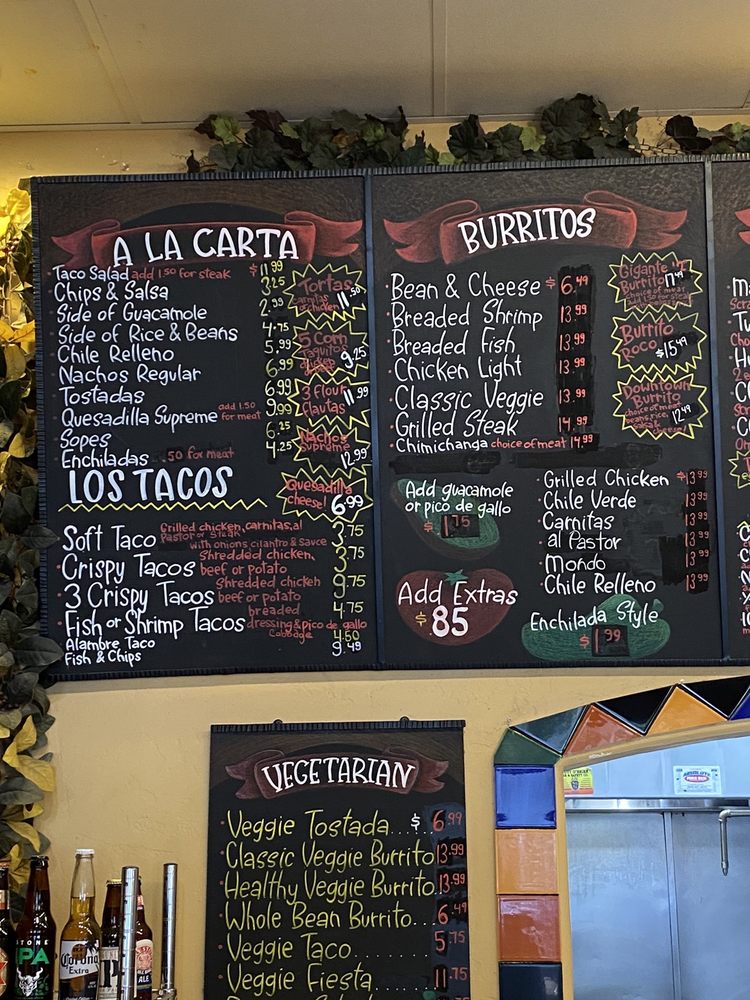 A LA CARTA
Taco Salad add 1.50 for steak $11.99
Chips & Salsa 3.25
Side of Guacamole 2.99
Side of Rice & Beans 4.75
Chile Relleno 5.99
Nachos Regular 6.99
Tostadas 6.99
Quesadilla Supreme add 1.50 for meat 9.99
Sopes 6.25
Enchiladas .50 for meat 4.25
Tortas
carnitas
or chicken 11.50
5 Corn
Taquitos
9.25
3 flour
flautas 11.99
Nachos
Supreme
12.99
Quesadilla
cheese! 6.99
LOS TACOS
Soft Taco Grilled chicken, carnitas, al
Pastor or Steak
with onions cilantro & sauce 3.75
Crispy Tacos Shredded chicken,
beef or potato 3.75
3 Crispy Tacos Shredded chicken
beef or potato 9.75
Fish or Shrimp Tacos breaded
dressing & pico de gallo
Cabbage 4.75
Alambre Taco 4.50
Fish & Chips 9.49
BURRITOS
Bean & Cheese $6.49
Breaded Shrimp 13.99
Breaded Fish 13.99
Chicken Light 13.99
Classic Veggie 13.99
Grilled Steak 14.99
Chimichanga choice of meat 14.99
Gigante
Burrito 17.49
choice of meat
Burrito
Roco $15.49
Downtown
Burrito
choice of meat
beans, rice
salsa &
cheese! 12.49
Add guacamole
or pico de gallo
$1.75
Add Extras
$.85
Grilled Chicken $13.99
Chile Verde 13.99
Carnitas 13.99
al Pastor 13.99
Mondo 13.99
Chile Relleno 13.99
Enchilada Style
$1.99
VEGETARIAN
Veggie Tostada.... $6.99
Classic Veggie Burrito 13.99
Healthy Veggie Burrito.. 13.99
Whole Bean Burrito... 6.49
Veggie Taco ........ 5.75
Veggie Fiesta ...... 11.75
STONE
IPA
Corona
Extra
ALE